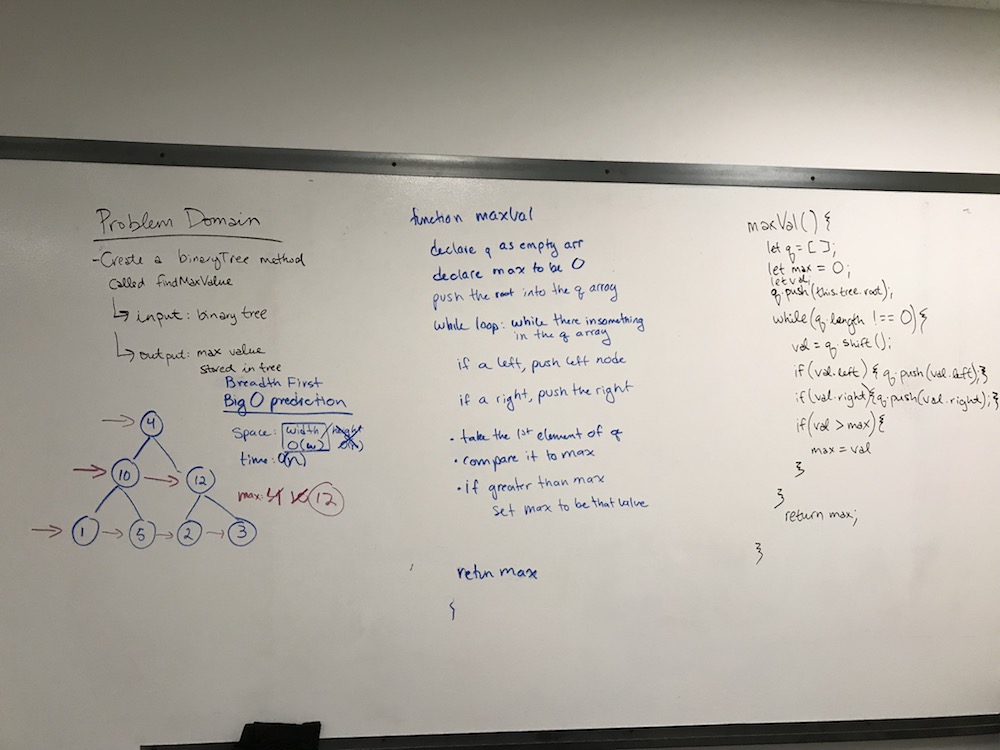 Problem Domain
- Create a binaryTree method
called findMaxValue
↳ input: binary tree
↳ output: max value
stored in tree
Breadth First
Big O prediction
Space: width / height
O(w) O(h)
time: O(n)
max: 4 10 12
4
10 12
1 5 2 3
function maxVal
declare q as empty arr
declare max to be 0
push the root into the q array
while loop: while there is something
in the q array
if a left, push left node
if a right, push the right
• take the 1st element of q
• compare it to max
• if greater than max
set max to be that value
return max
}
maxVal() {
let q = [ ];
let max = 0;
let val;
q.push(this.tree.root);
while(q.length !== 0) {
val = q.shift();
if(val.left) { q.push(val.left); }
if(val.right) { q.push(val.right); }
if(val > max) {
max = val
}
}
return max;
}